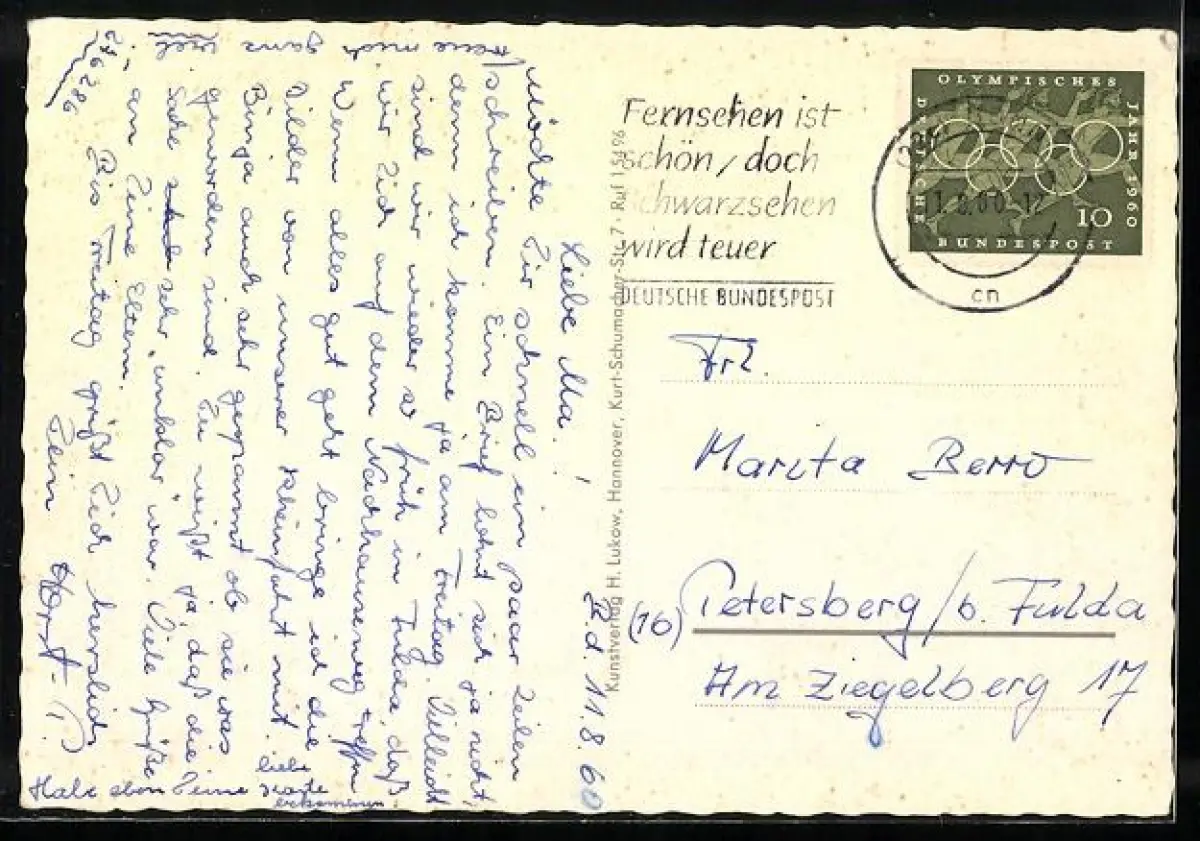 OLYMPISCHES
JAHR 1960
DEUTSCHE
BUNDESPOST
10
11.8.60.12
cn
Fernsehen ist
schön/doch
schwarzsehen
wird teuer
DEUTSCHE BUNDESPOST
Kunstverlag H. Lukow, Hannover, Kurt-Schumacher-Str. 7 · Ruf 15196
Frl.
Marita Berro
(16) Petersberg/b. Fulda
Am Ziegelberg 17
d. 11.8.60
Liebe Ma!
Möchte Dir schnell ein paar Zeilen
schreiben. Ein Brief lohnt sich ja nicht,
denn ich komme ja am Freitag. Vielleicht
sind wir wieder so früh in Fulda, daß
wir Dich auf dem Nachhauseweg treffen
Wenn alles gut geht bringe ich die
Bilder von unserer Rheinfahrt mit.
Binja auch sehr gespannt ob sie was
geworden sind. Du weißt ja, daß die
Sache sehr "unklar" war. Viele Grüße
an Deine Eltern.
Bis Freitag grüßt Dich herzlich
Dein Horst. P.
freue mich ganz
Habe eben Deine liebe Karte
bekommen
276286